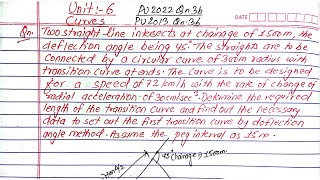 Unit:- 6 PU2022 Qn.3b
Curves PU2013 Qn.3b
DATE
Qn. Two straight line intersects at chainage of 1500m, the
deflection angle being 45°. The straights are to be
connected by a circular curve of 300m radius with
transition curve at ends. The curve is to be designed
for a speed of 72 km/h with the rate of change of
radial acceleration of 30cm/sec³. Determine the required
length of the transition curve and find out the necessary
data to set out the first transition curve by deflection
angle method. Assume the peg interval as 15m.
45° Chainage = 1500m